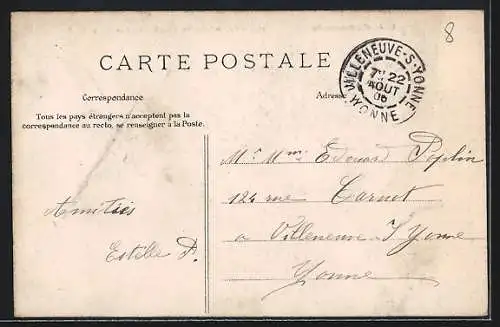 8
CARTE POSTALE
VILLENEUVE-S-YONNE
7 22
AOUT
06
YONNE
Correspondance
Adresse
Tous les pays étrangers n'acceptent pas la
correspondance au recto, se renseigner à la Poste.
Mr Mme Edouard Poplin
124 rue Carnot
Amitiés
a Villeneuve s/ Yonne
Estelle P.
Yonne